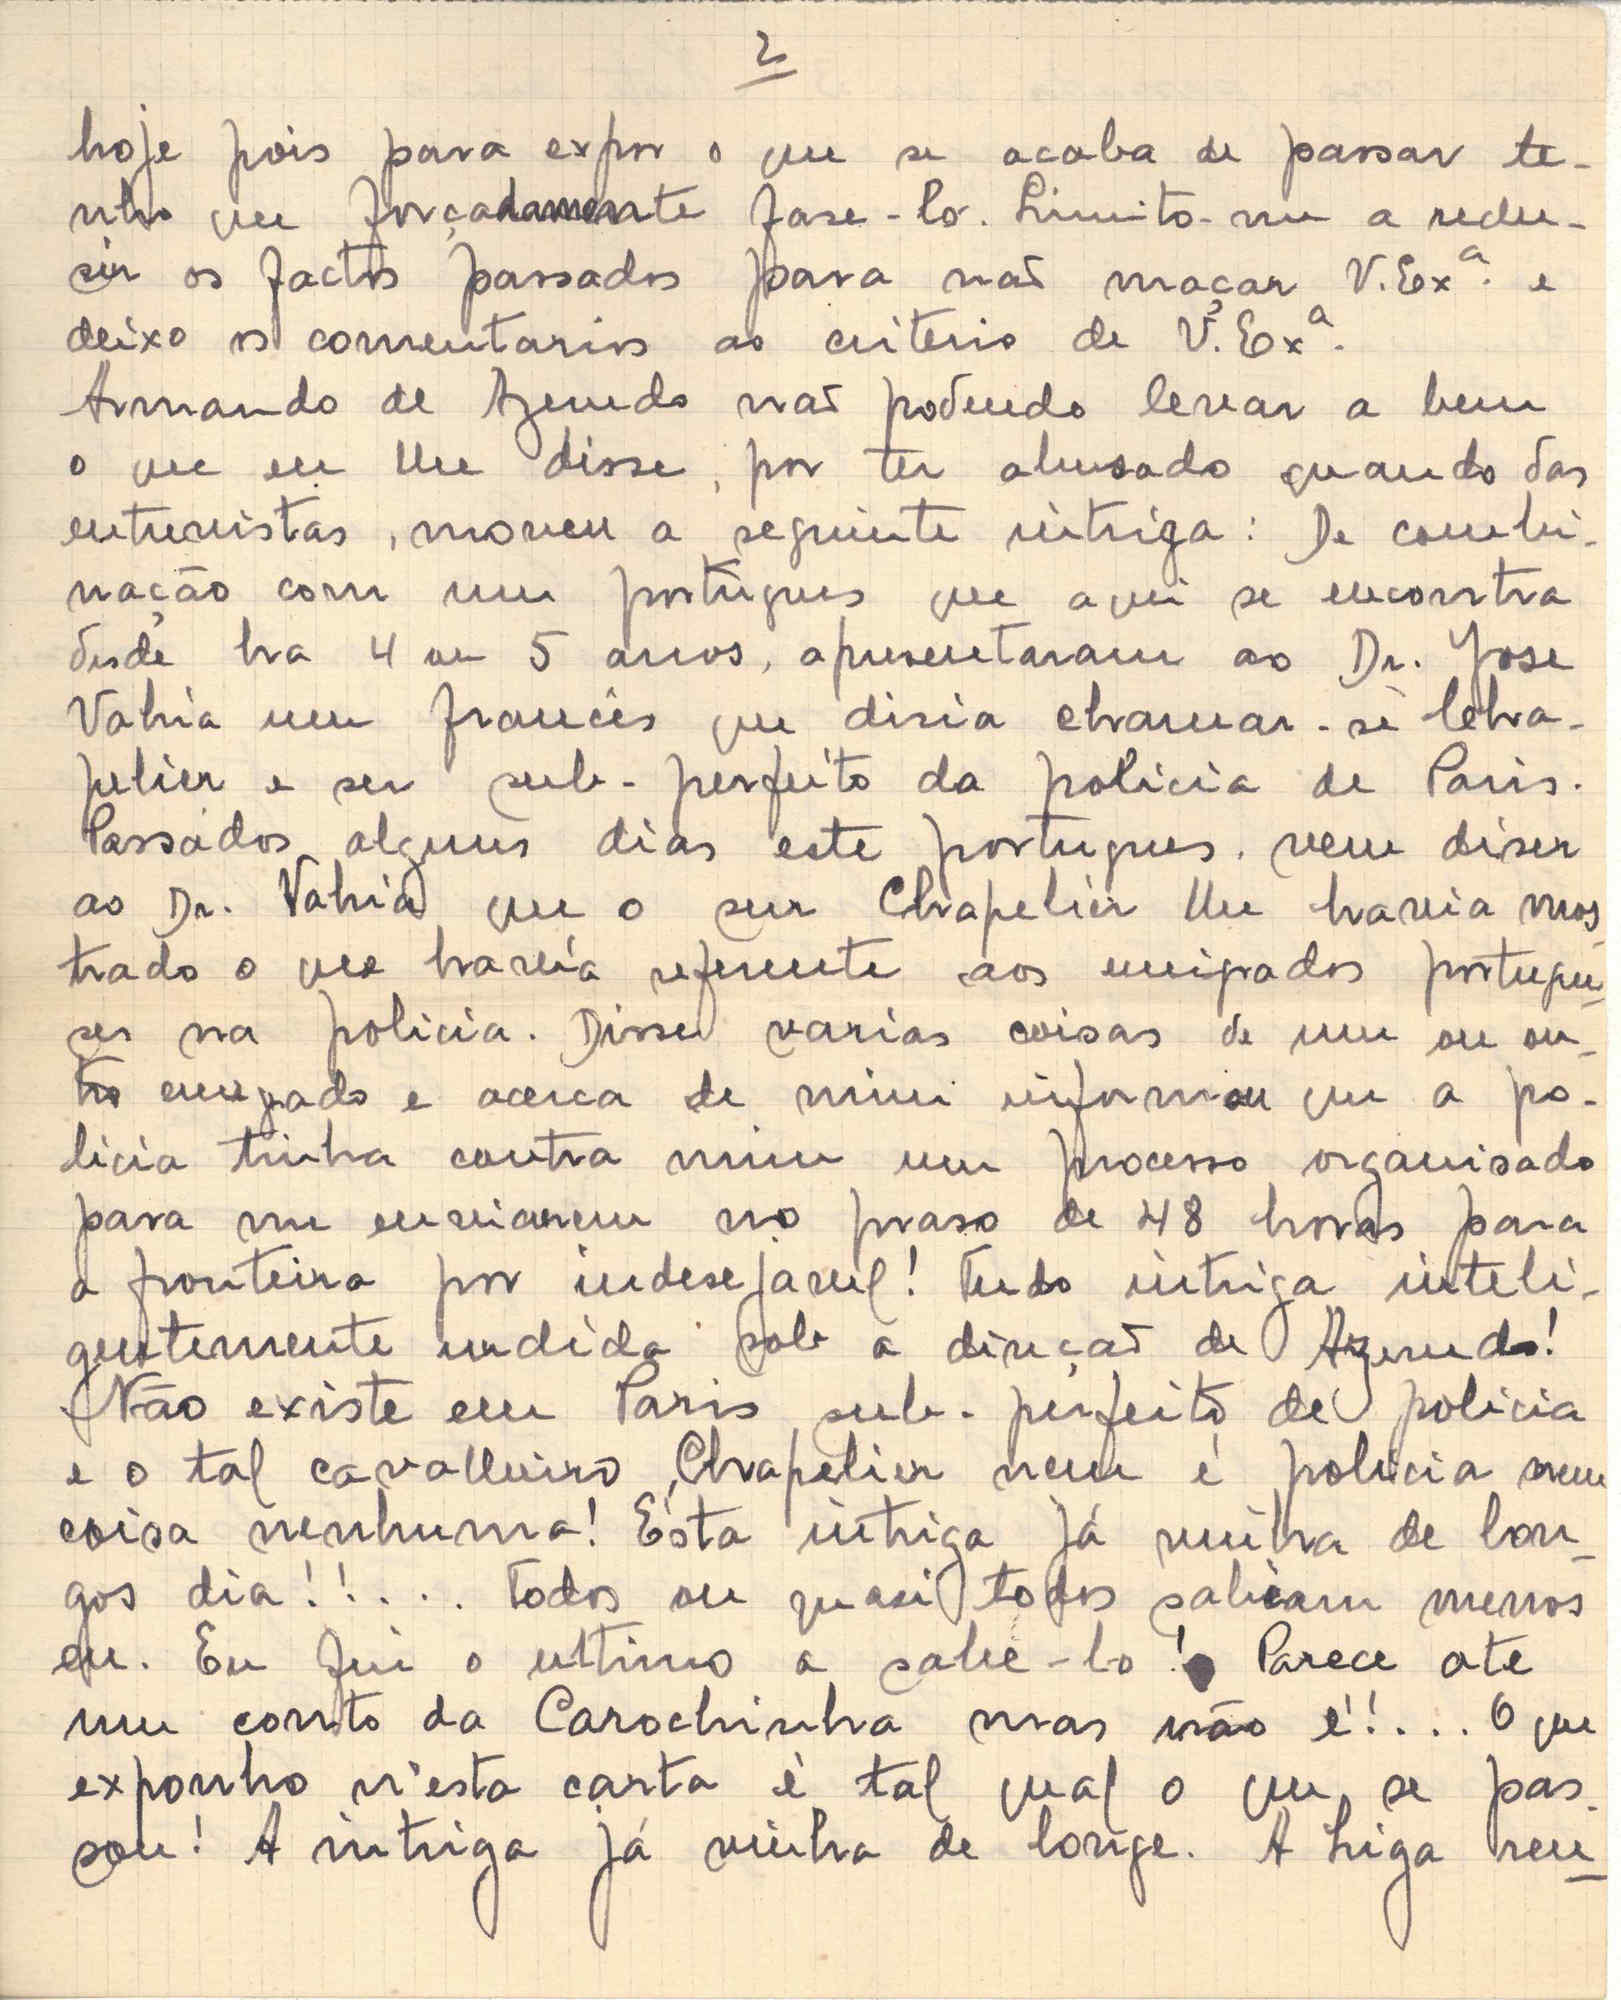 2
hoje pois para expor o que se acaba de passar te-
nho que forçadamente fase-lo. Limito-me a redu-
sir os factos passados para naõ maçar V. Exª. e
deixo os comentarios ao criterio de V. Exª.
Armando de Azevedo naõ podendo levar a bem
o que eu lhe disse, por ter abusado quando das
entrevistas, moveu a seguinte intriga: De combi-
nação com um portugues que aqui se encontra
desde ha 4 ou 5 anos, apresentaram ao Dr. Jose
Vahia um francês que disia chamar-se leha-
pelier e ser sub-perfeito da policia de Paris.
Passados alguns dias este portugues. vem diser
ao Dr. Vahia que o snr Chapelier lhe havia mos-
trado o que havia referente aos emigrados portugue-
ses na policia. Disse varias coisas de um ou ou-
tro emigrado e acerca de mim informou que a po-
licia tinha contra mim um processo organisado
para me enviarem no praso de 48 horas para
a fronteira por indesejavel! Tudo intriga inteli-
gentemente urdida sob a direçaõ de Azevedo!
Não existe em Paris sub-perfeito de policia
e o tal cavalheiro Chapelier nem é policia nem
coisa nenhuma! Esta intriga já vinha de lon-
gos dia!!... Todos ou quasi todos sabiam menos
eu. Eu fui o ultimo a sabe-lo! Parece ate
um conto da Carochinha mas não é!.... O que
exponho n'esta carta é tal qual o que se pas-
sou! A intriga já vinha de longe. A Liga reu-